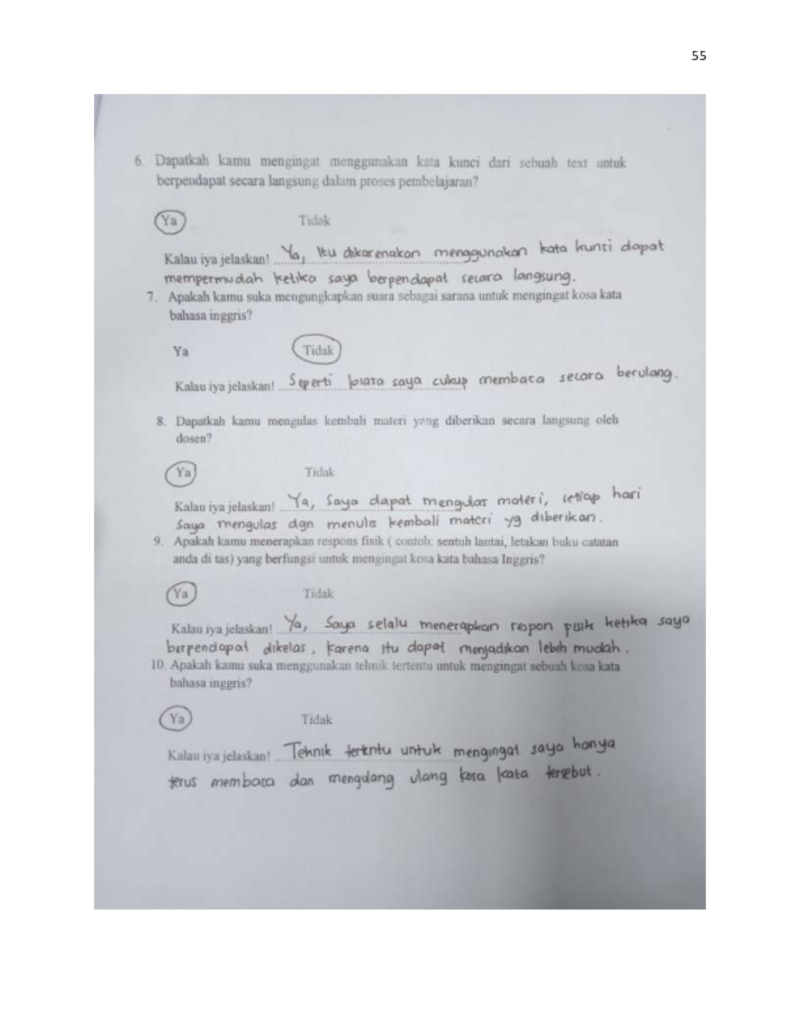 55
6. Dapatkah kamu mengingat menggunakan kata kunci dari sebuah text untuk
berpendapat secara langsung dalam proses pembelajaran?
Ya Tidak
Kalau iya jelaskan! Ya, Itu dikarenakan menggunakan kata kunci dapat
mempermudah ketika saya berpendapat secara langsung.
7. Apakah kamu suka mengungkapkan suara sebagai sarana untuk mengingat kosa kata
bahasa inggris?
Ya Tidak
Kalau iya jelaskan! Seperti biasa saya cukup membaca secara berulang.
8. Dapatkah kamu mengulas kembali materi yang diberikan secara langsung oleh
dosen?
Ya Tidak
Kalau iya jelaskan! Ya, Saya dapat mengulas materi, setiap hari
Saya mengulas dgn menulis kembali materi yg diberikan.
9. Apakah kamu menerapkan respons fisik ( contoh: sentuh lantai, letakan buku catatan
anda di tas) yang berfungsi untuk mengingat kosa kata bahasa Inggris?
Ya Tidak
Kalau iya jelaskan! Ya, Saya selalu menerapkan respon fisik ketika saya
berpendapat dikelas, karena itu dapat menjadikan lebih mudah.
10. Apakah kamu suka menggunakan tehnik tertentu untuk mengingat sebuah kosa kata
bahasa inggris?
Ya Tidak
Kalau iya jelaskan! Tehnik tertentu untuk mengingat saya hanya
terus membaca dan mengulang ulang kosa kata tersebut.